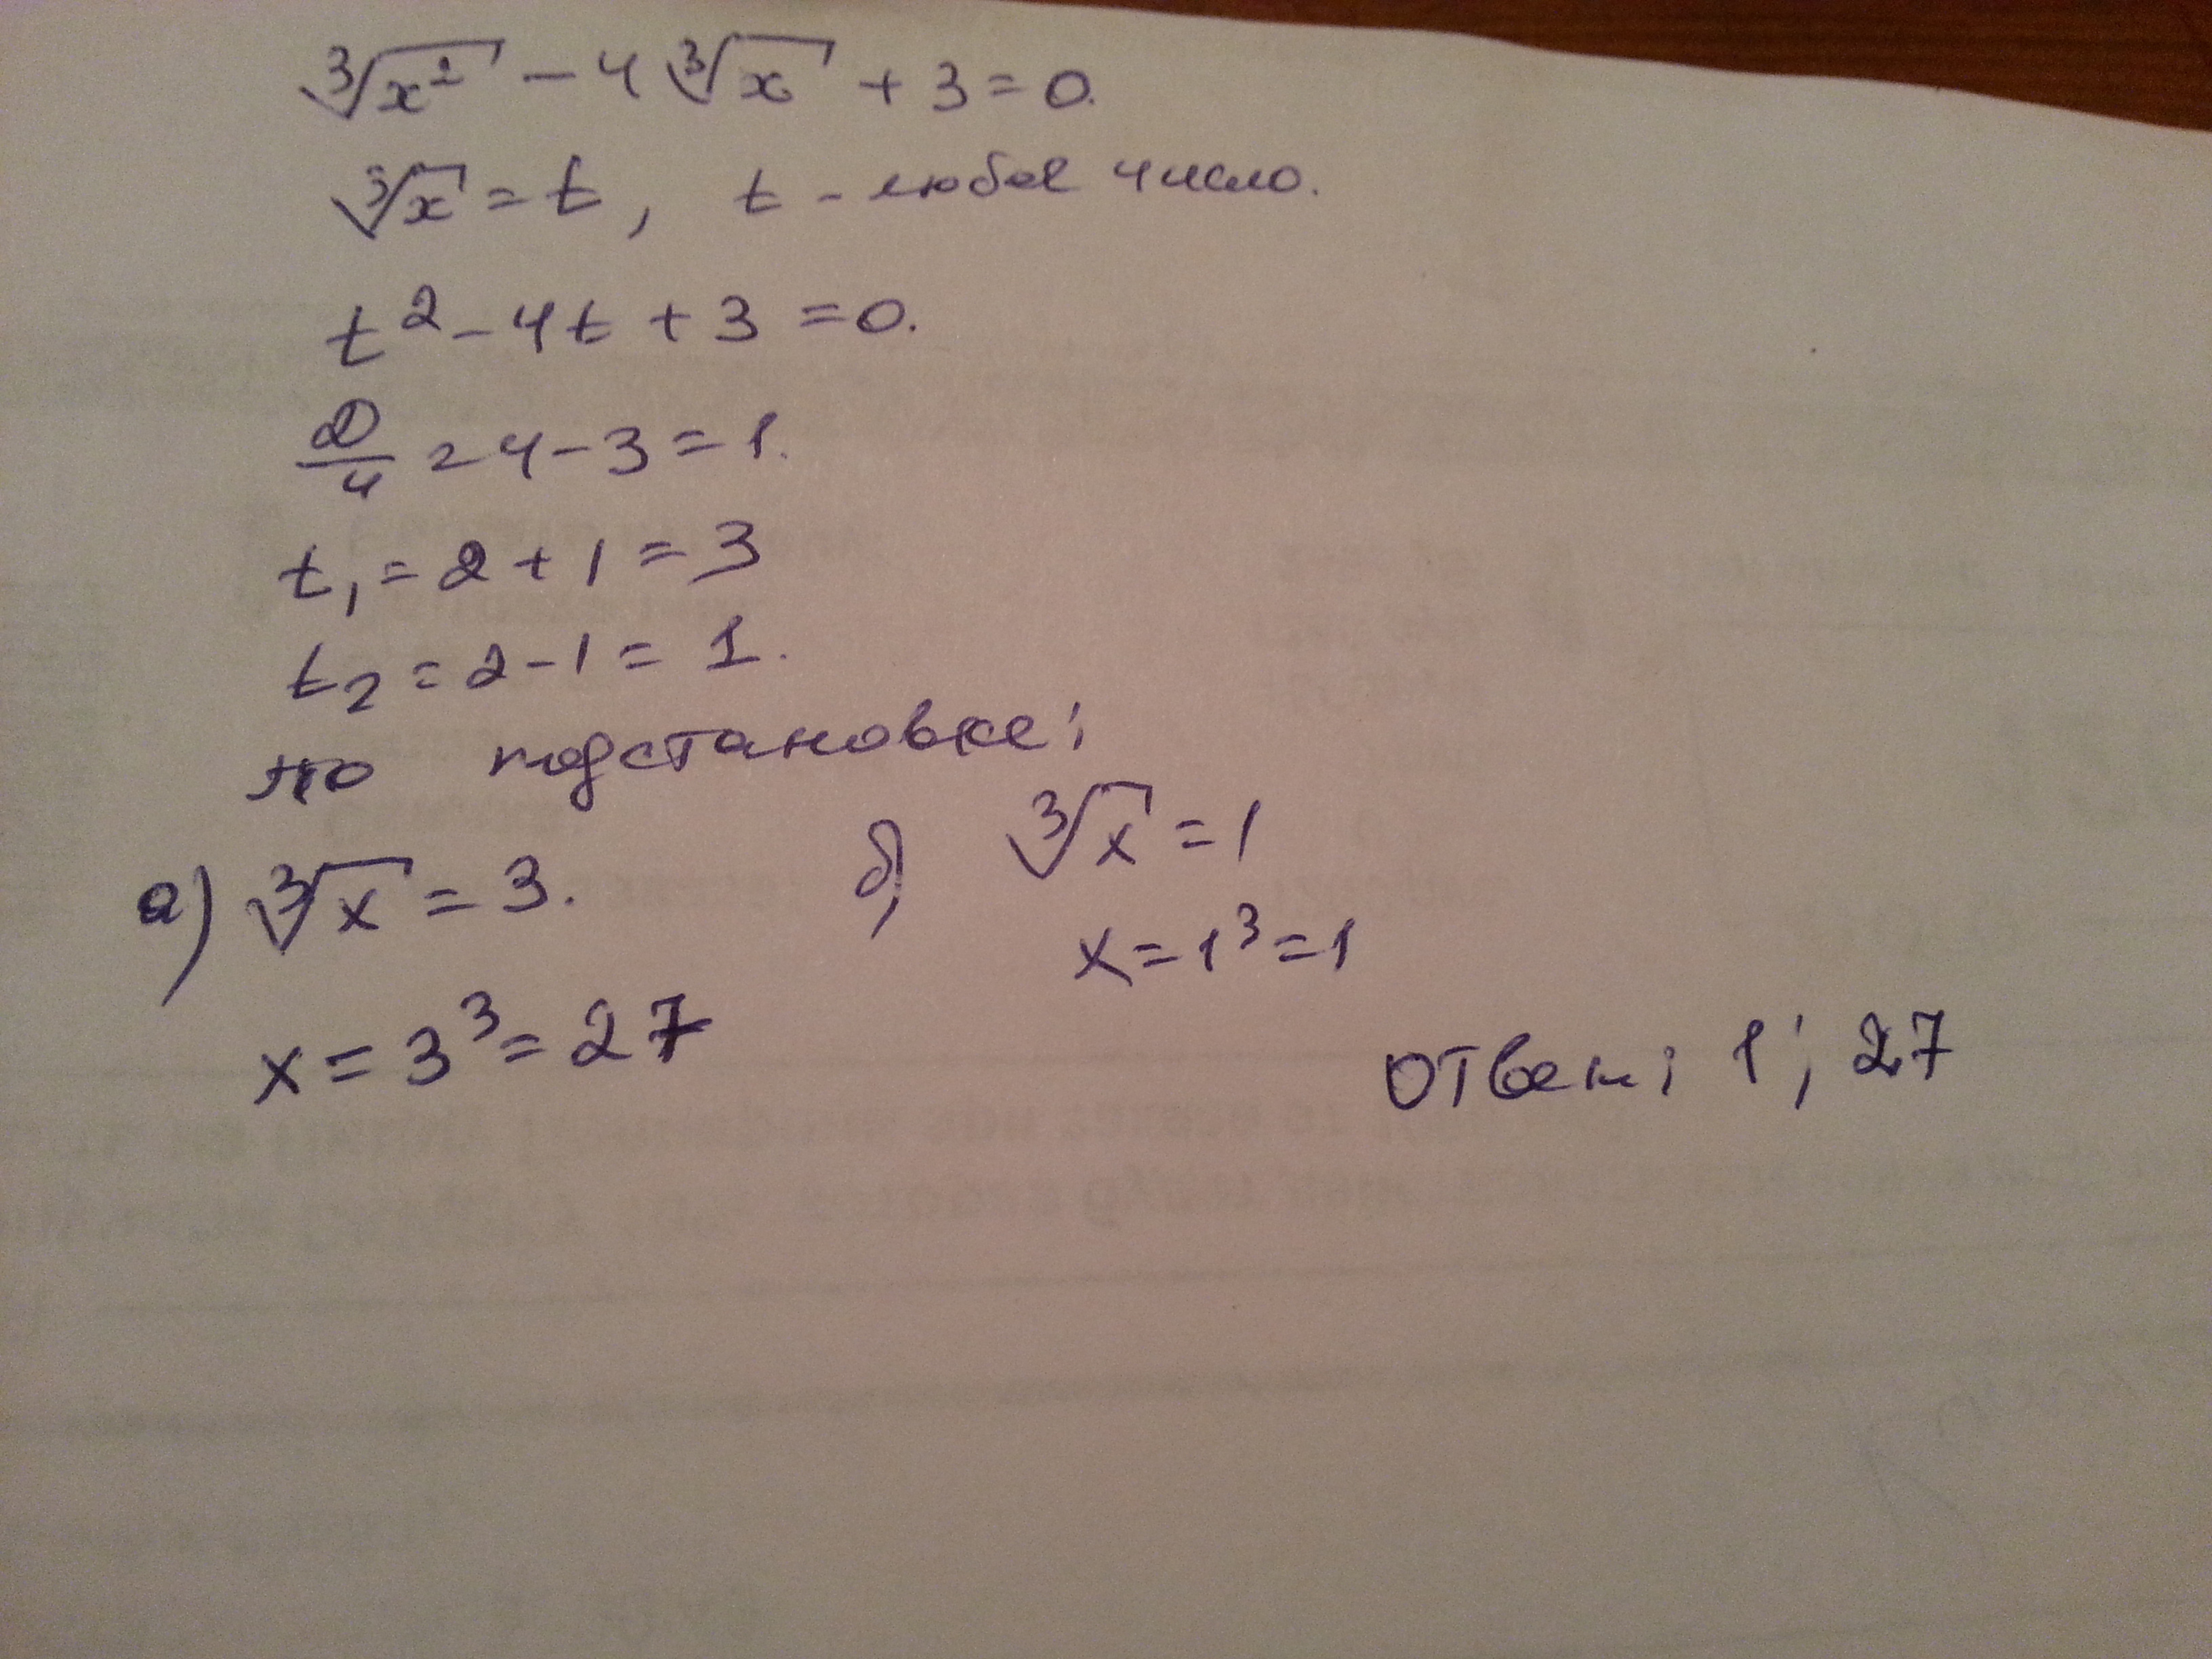 ∛x² - 4∛x + 3 = 0.
∛x = t, t - любое число.
t² - 4t + 3 = 0.
D/4 = 4 - 3 = 1.
t₁ = 2 + 1 = 3
t₂ = 2 - 1 = 1.
по подстановке:
а) ∛x = 3.
x = 3³ = 27
б) ∛x = 1
x = 1³ = 1
Ответ: 1; 27